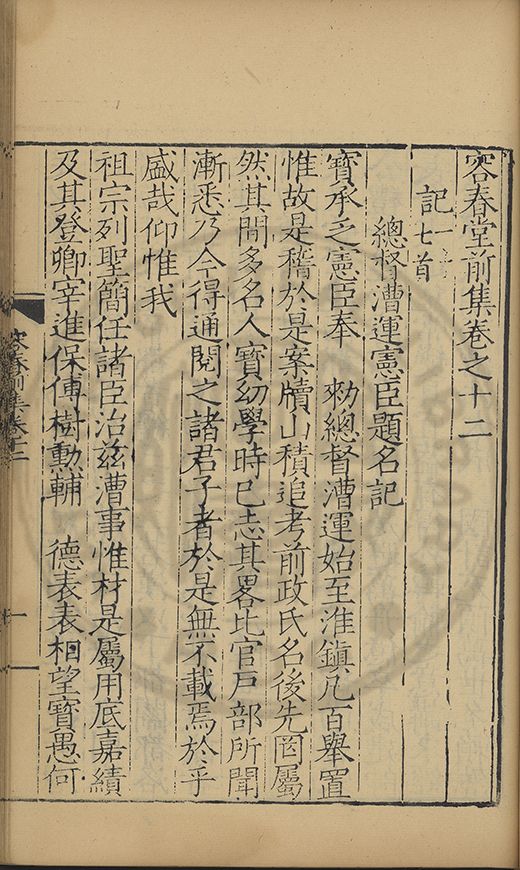 容春堂前集卷之十二
記一 七首
總督漕運憲臣題名記
寶承之憲臣奉 勑總督漕運始至淮鎮凡百舉置
惟故是稽於是案牘山積追考前政氏名後先罔屬
然其間多名人寶幼學時已志其畧比官戶部所聞
漸悉乃今得通閱之諸君子者於是無不載焉於乎
盛哉仰惟我
祖宗列聖簡任諸臣治兹漕事惟材是屬用底嘉績
及其登卿宰進保傅樹勳輔 德表表相望寶愚何
容春前集卷十二
一